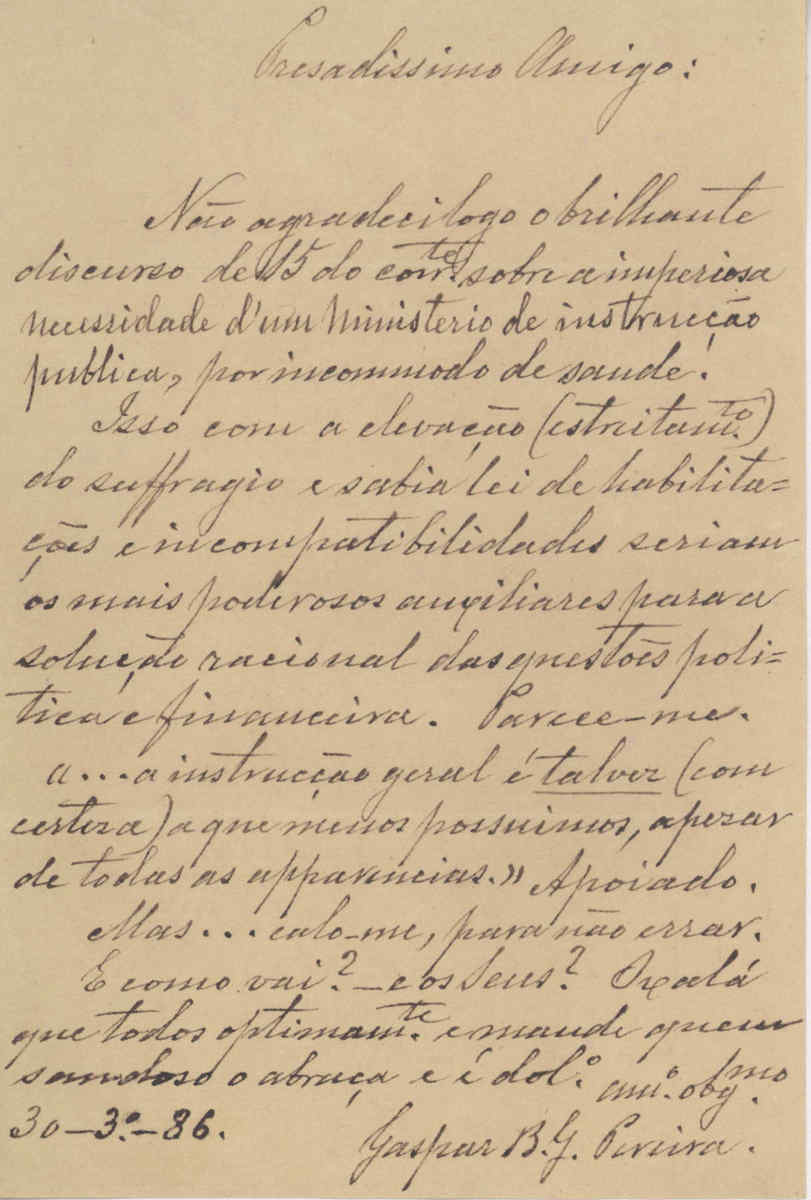 Presadissimo Amigo:
Não agradeci logo o brilhante
discurso de 15 do corrte. sobre a imperiosa
necessidade d'um Ministerio de instrucção
publica, por incommodo de saude.
Isso com a elevação (estreitamto.)
do suffragio e sabia lei de habilita=
ções e incompatibilidades seriam
os mais poderosos auxiliares para a
solução racional das questões poli=
tica e financeira. Parece-me.
a... a instrucção geral é talvez (com
certeza) a que menos possuimos, apezar
de todas as apparencias.» Apoiado.
Mas... calo-me, para não errar.
E como vai? — e os seus? Oxalá
que todos optimamte. e mande quem
saudoso o abraça e é dol.º amº. obgmo.
30-3º-86.
Gaspar B. G. Pereira.